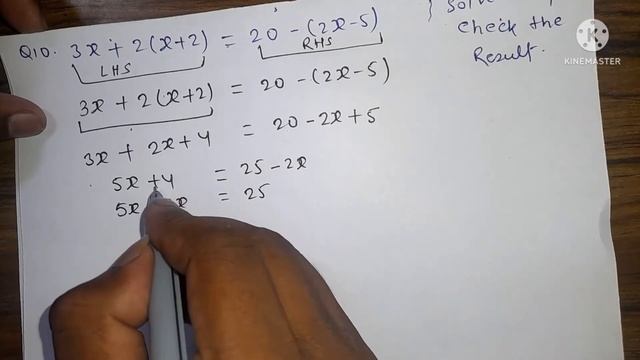 Q10. 3x + 2(x+2) = 20 - (2x-5)
LHS RHS
3x + 2(x+2) = 20 - (2x-5)
3x + 2x + 4 = 20 - 2x + 5
5x + 4 = 25 - 2x
5x x = 25
} Solve
Check the
Result.
KINEMASTER